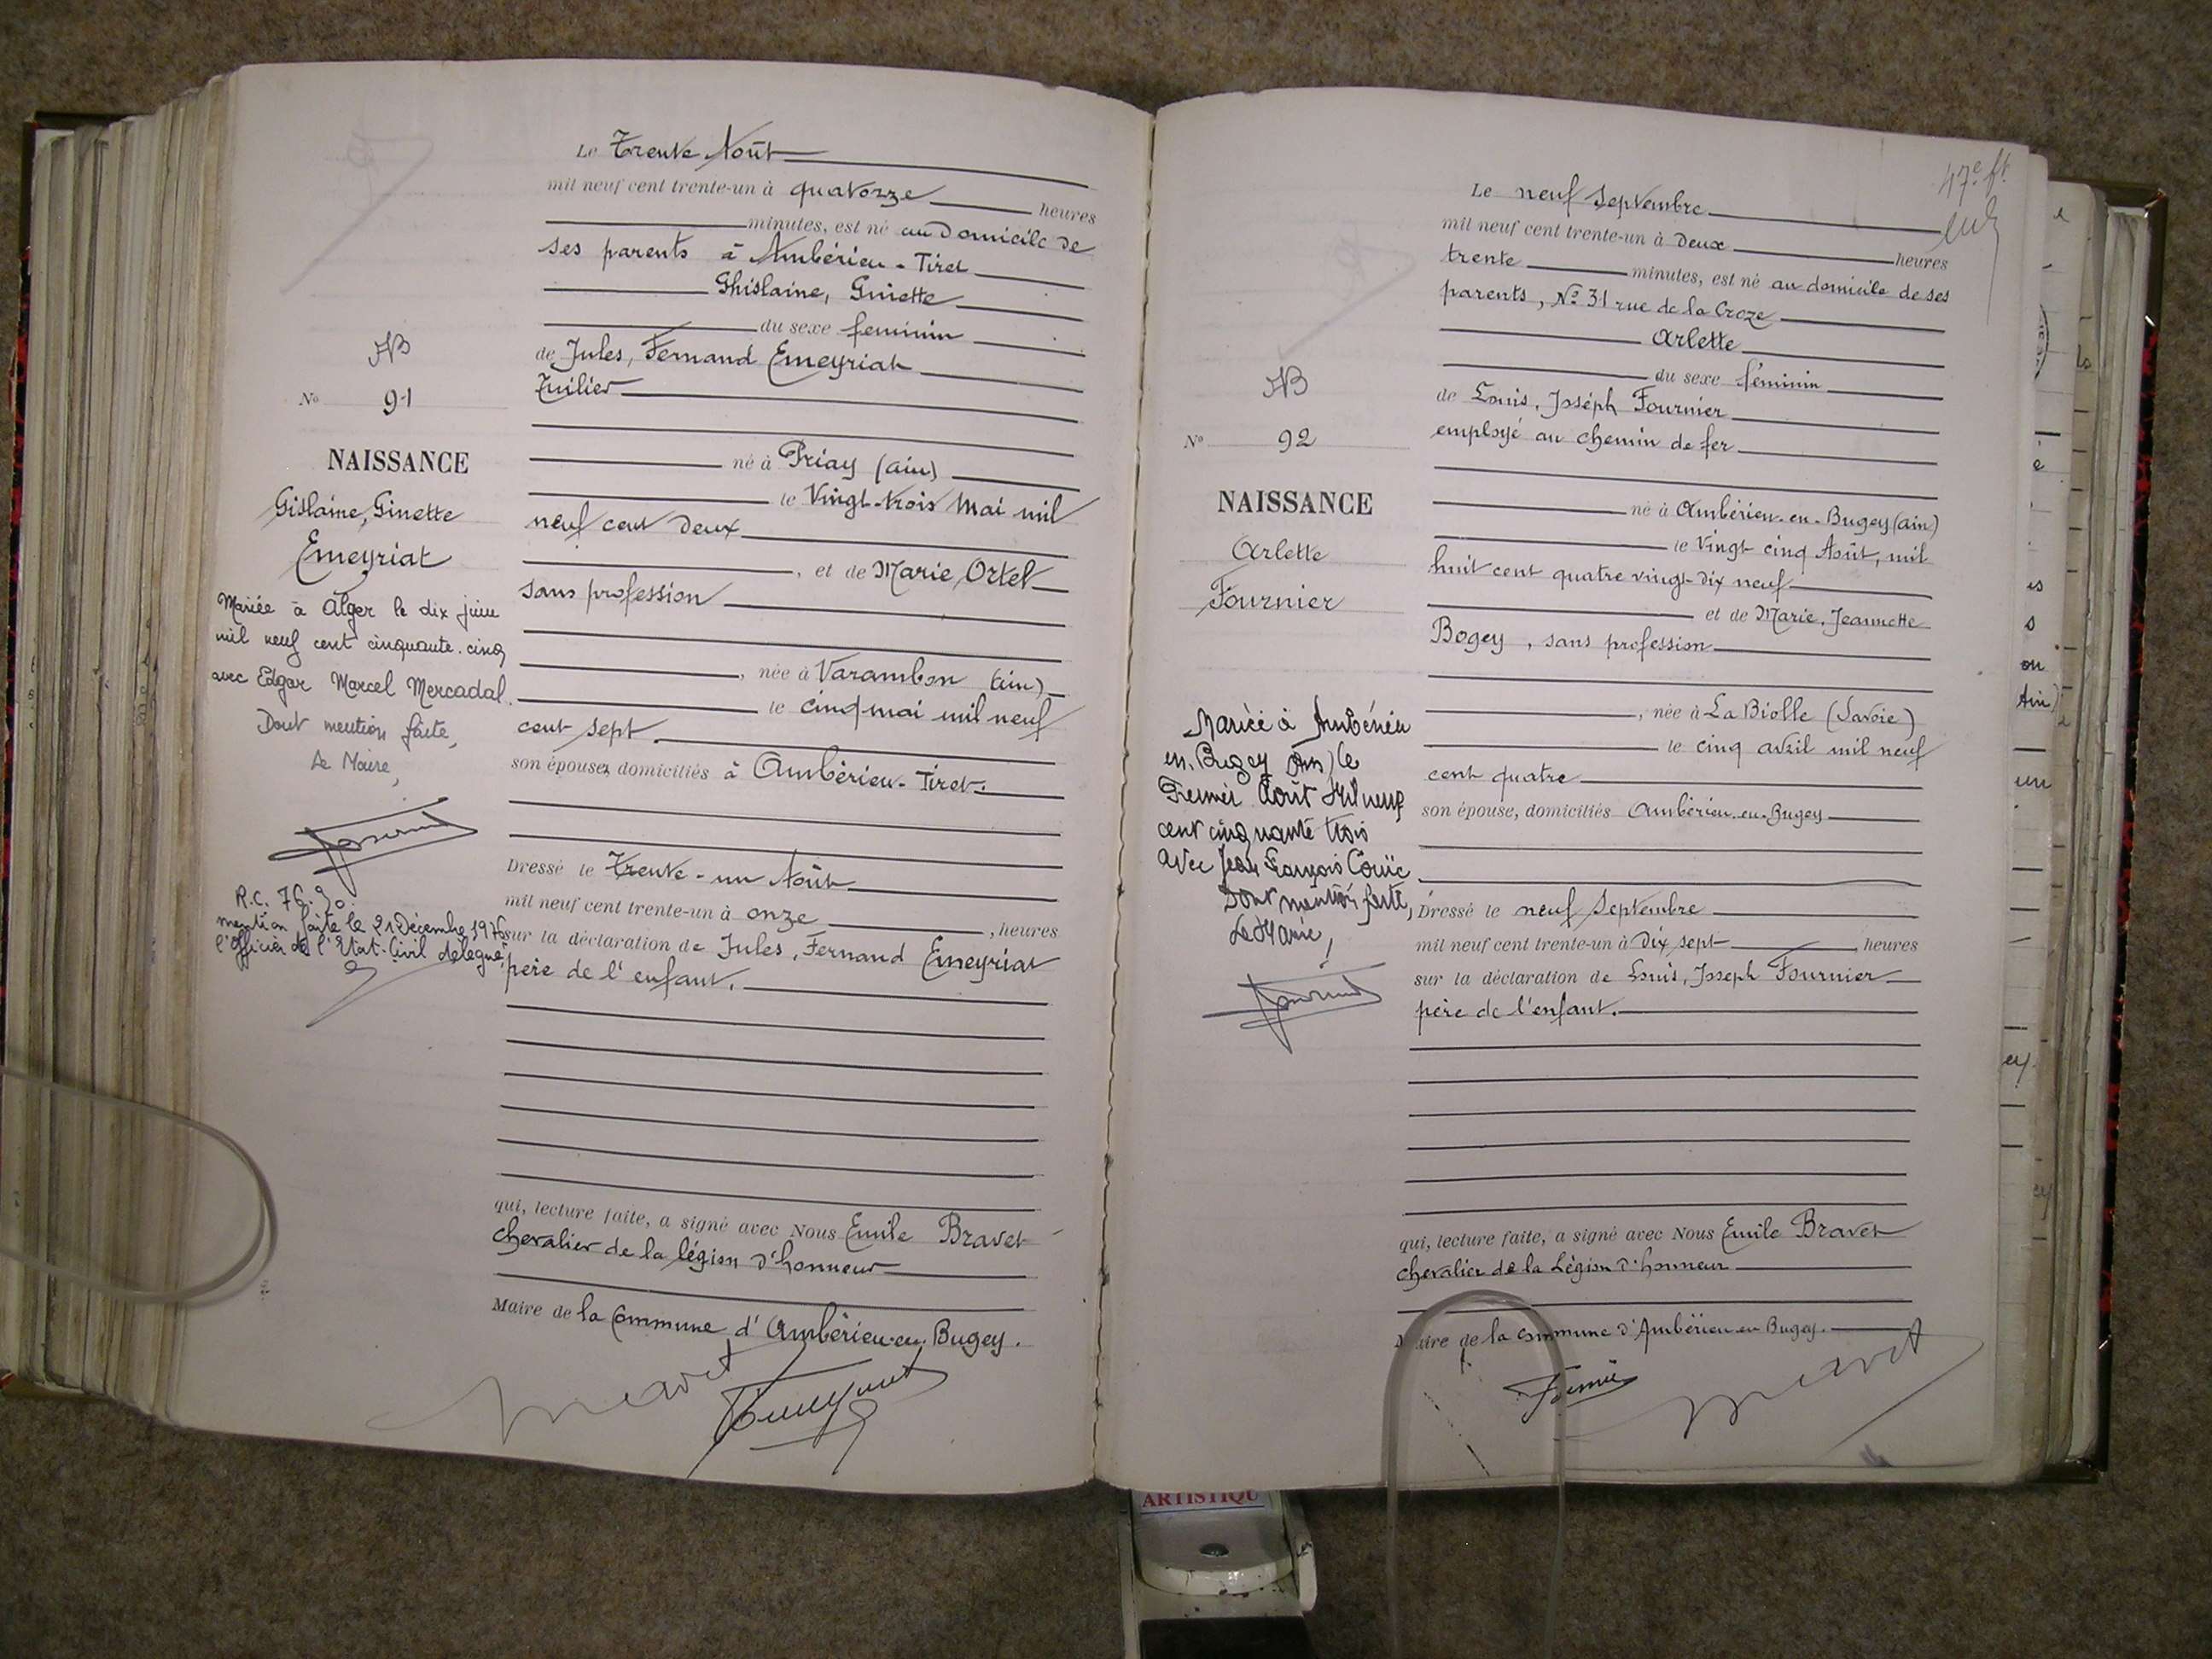 Le Trente Août
mil neuf cent trente-un à quatorze heures
minutes, est né au Domicile de
ses parents à Ambérieu-Tiret
Ghislaine, Ginette
du sexe feminin
de Jules, Fernand Emeyriat
Tuilier
né à Priay (ain)
le Vingt-trois Mai mil
neuf cent Deux
, et de Marie Ortel
sans profession
, née à Varambon (ain)
le cinq mai mil neuf
cent sept
son épouse, domiciliés à Ambérieu-Tiret.
Dressé le Trente-un Août
mil neuf cent trente-un à onze , heures
sur la déclaration de Jules, Fernand Emeyriat
père de l'enfant.
qui, lecture faite, a signé avec Nous Emile Bravet
chevalier de la légion d'honneur
Maire de la Commune d'Ambérieu-en-Bugey.
AB
No 91
NAISSANCE
Gislaine, Ginette
Emeyriat
Mariée à Alger le dix juin
mil neuf cent cinquante-cinq
avec Edgar Marcel Mercadal.
Dont mention faite,
Le Maire,
R.C. 76.90.
mention faite le 21 Décembre 1976
l'Officier de l'Etat-Civil délégué,
47e ft
Le neuf Septembre
mil neuf cent trente-un à Deux heures
trente minutes, est né au domicile de ses
parents, No 31 rue de la Croze
Arlette
du sexe féminin
de Louis, Joséph Fournier
employé au chemin de fer
né à Ambérieu-en-Bugey (ain)
le Vingt cinq Août, mil
huit cent quatre vingt-dix neuf
et de Marie, Jeannette
Bogey, sans profession
, née à La Biolle (Savoie)
le cinq avril mil neuf
cent quatre
son épouse, domiciliés Ambérieu-en-Bugey
Dressé le neuf Septembre
mil neuf cent trente-un à Dix sept heures
sur la déclaration de Louis, Joseph Fournier
père de l'enfant.
qui, lecture faite, a signé avec Nous Emile Bravet
chevalier de la Légion d'honneur
Maire de la commune d'Ambérieu-en-Bugey.
AB
No 92
NAISSANCE
Arlette
Fournier
Mariée à Ambérieu
en-Bugey (Ain) le
Premier Août Mil neuf
cent cinquante trois
avec Jean François Couïc
Dont mention faite,
Le Maire,
ARTISTIQU